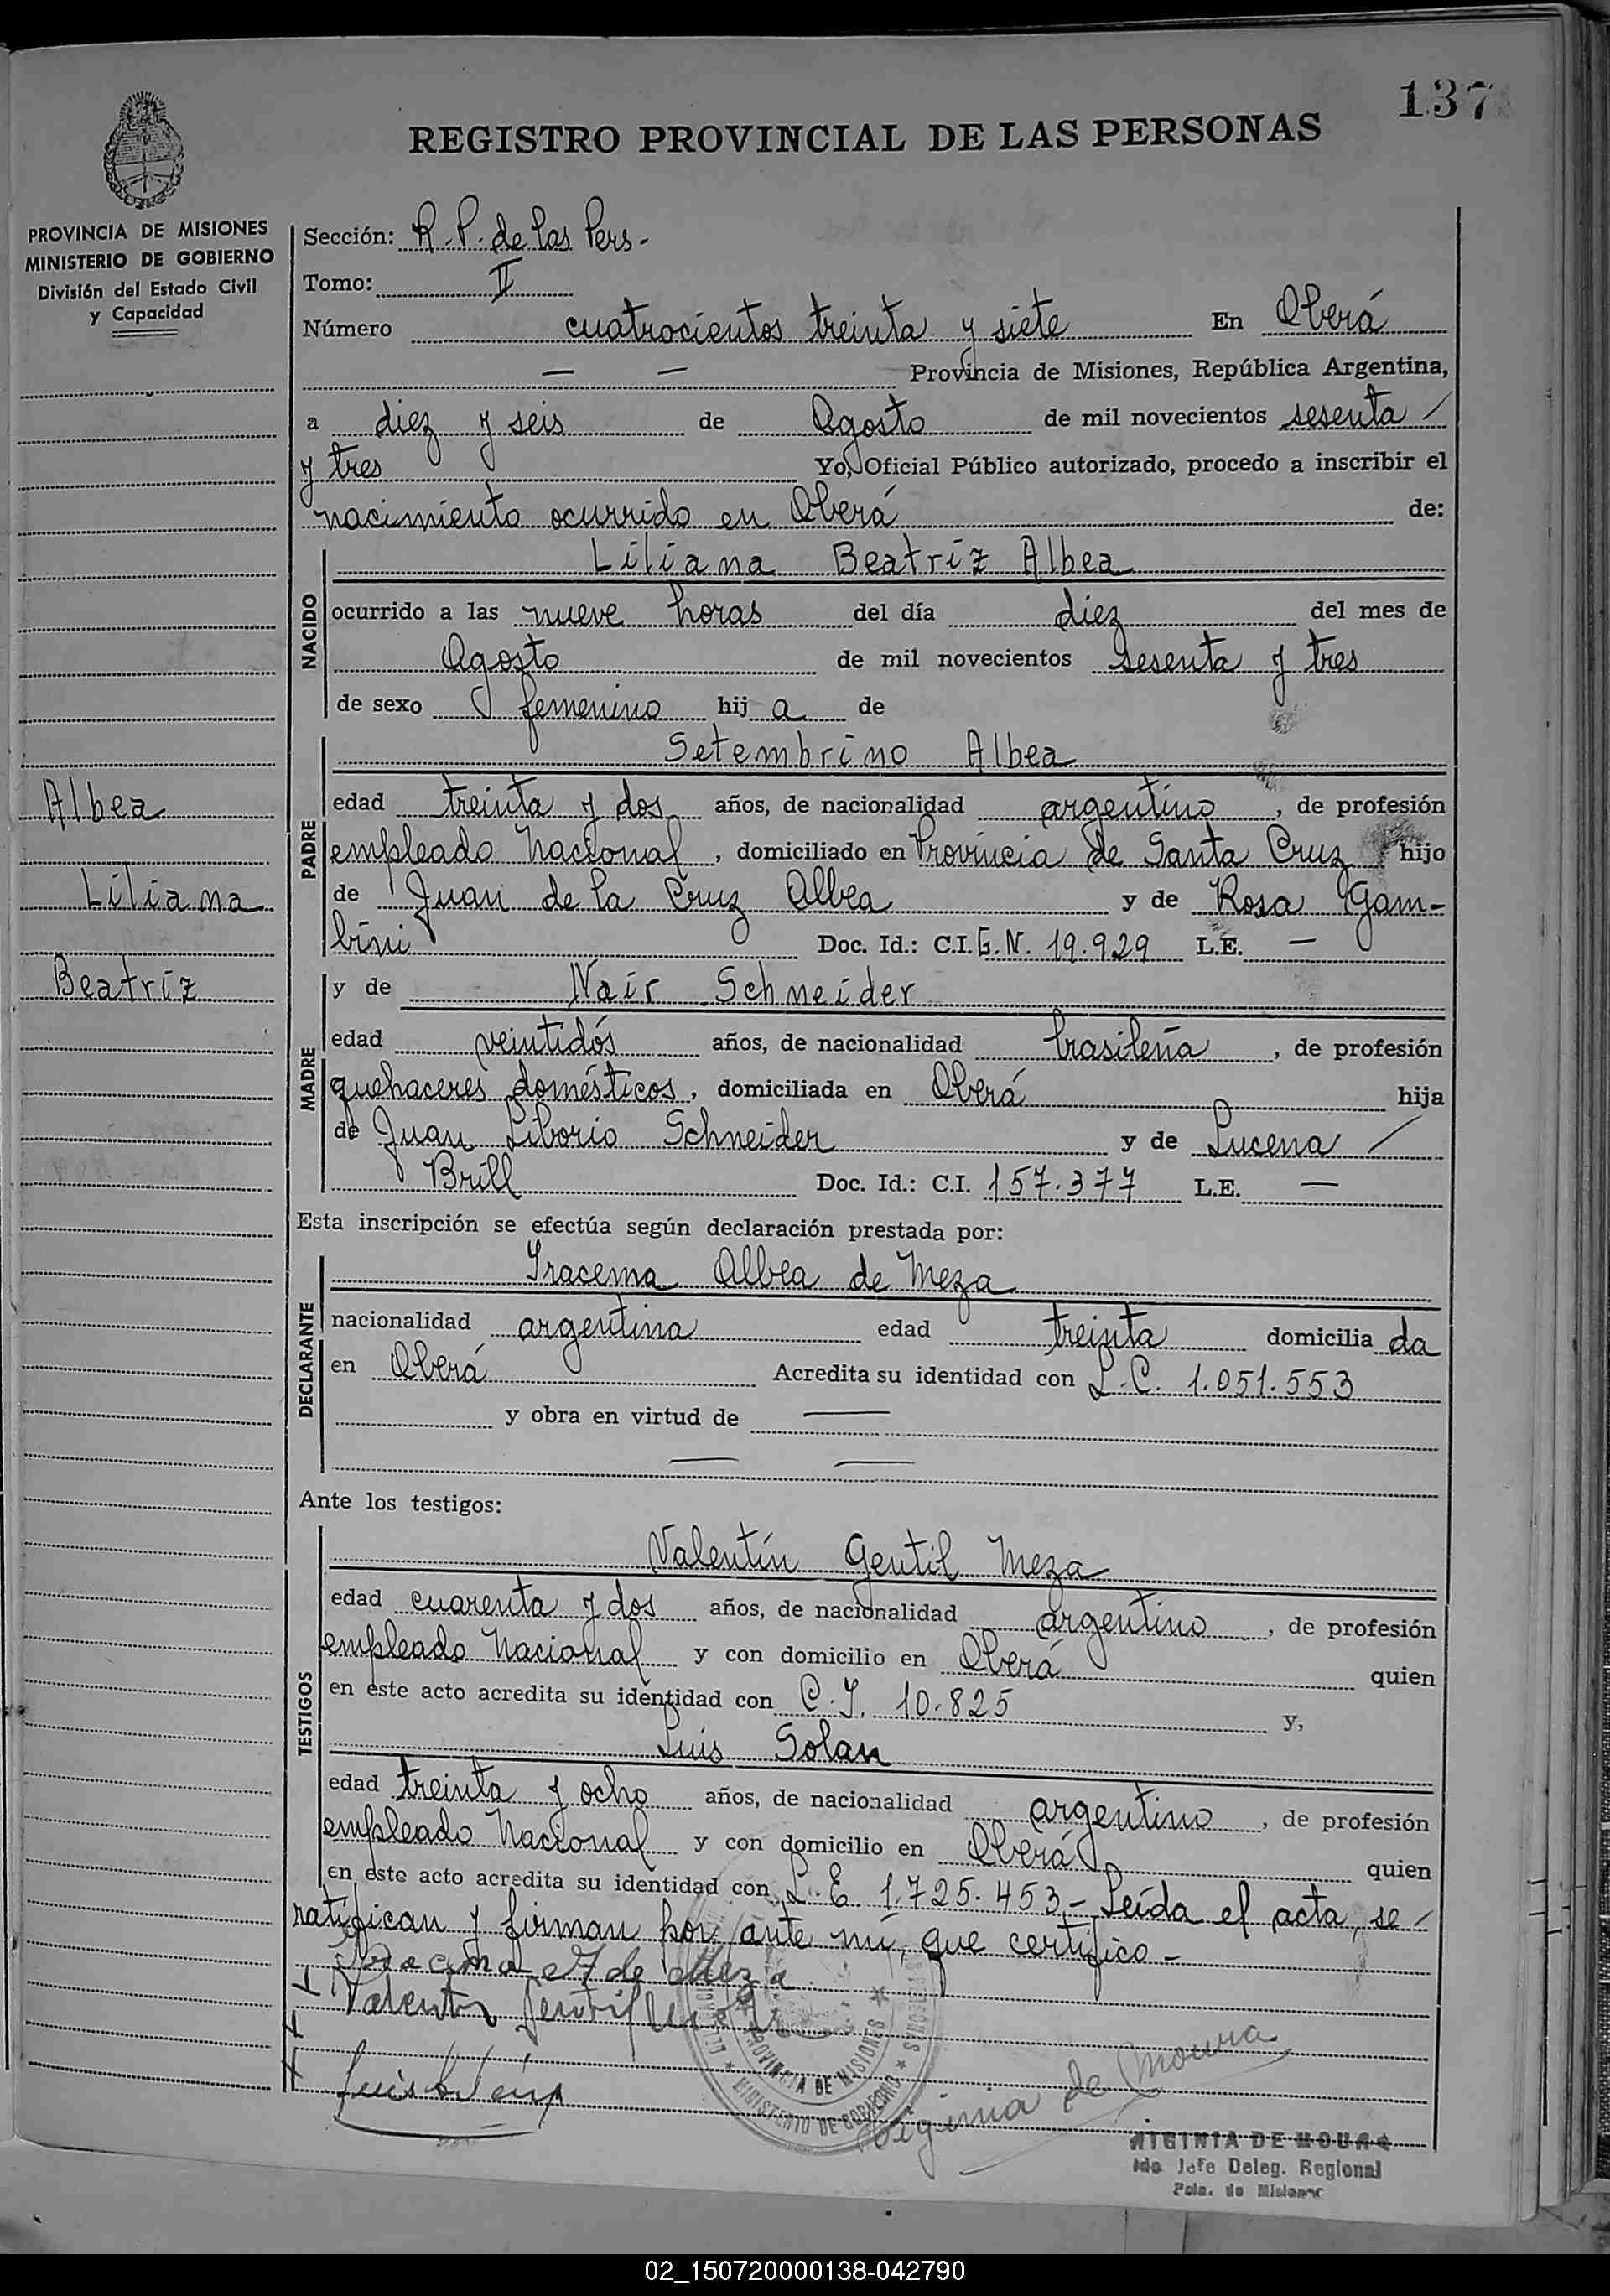 137
REGISTRO PROVINCIAL DE LAS PERSONAS
PROVINCIA DE MISIONES
MINISTERIO DE GOBIERNO
División del Estado Civil
y Capacidad
Sección: R.P. de las Pers-
Tomo: II
Número cuatrocientos treinta y siete En Oberá
— — Provincia de Misiones, República Argentina,
a diez y seis de Agosto de mil novecientos sesenta /
y tres Yo, Oficial Público autorizado, procedo a inscribir el
nacimiento ocurrido en Oberá de:
NACIDO
Liliana Beatriz Albea
ocurrido a las nueve horas del día diez del mes de
Agosto de mil novecientos sesenta y tres
de sexo femenino hija de
PADRE
Setembrino Albea
edad treinta y dos años, de nacionalidad argentino, de profesión
empleado Nacional, domiciliado en Provincia de Santa Cruz hijo
de Juan de la Cruz Albea y de Rosa Gam-
bini Doc. Id.: C.I. G.N. 19.929 L.E. —
Albea
Liliana
Beatriz
MADRE
y de Nair Schneider
edad veintidós años, de nacionalidad brasileña, de profesión
quehaceres domésticos, domiciliada en Oberá hija
de Juan Liborio Schneider y de Lucena /
Brill Doc. Id.: C.I. 157.377 L.E. —
Esta inscripción se efectúa según declaración prestada por:
DECLARANTE
Iracema Albea de Meza
nacionalidad argentina edad treinta domiciliada
en Oberá Acredita su identidad con L.C. 1.051.553
y obra en virtud de —
— —
Ante los testigos:
TESTIGOS
Valentín Gentil Meza
edad cuarenta y dos años, de nacionalidad argentino, de profesión
empleado Nacional y con domicilio en Oberá quien
en este acto acredita su identidad con C.I. 10.825 y,
Luis Solan
edad treinta y ocho años, de nacionalidad argentino, de profesión
empleado Nacional y con domicilio en Oberá quien
en este acto acredita su identidad con L.E 1.725.453- Leída el acta, se /
ratifican y firman por ante mí, que certifico-
de Meza
Valentin Gentil
Luis
PROVINCIA DE MISIONES
MINISTERIO DE GOBIERNO
Higinia de Moura
HIGINIA DE MOURA
Jefe Deleg. Regional
Pcia. de Misiones
02_150720000138-042790